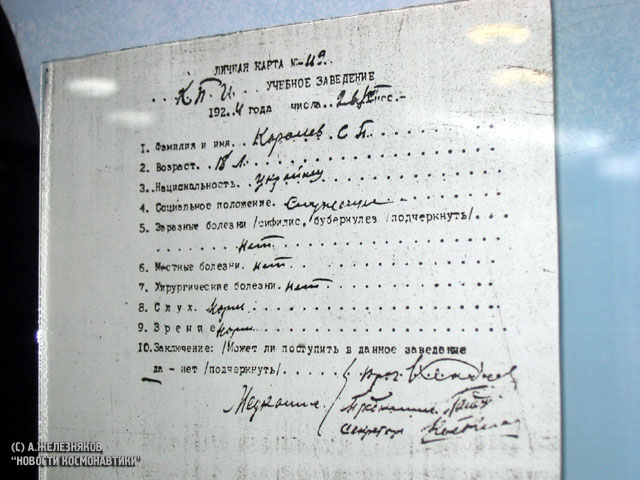 ЛИЧНАЯ КАРТА №-49
КПИ УЧЕБНОЕ ЗАВЕДЕНИЕ
1924 года числа
1. Фамилия и имя. Королев С П.
2. Возраст. 18 л.
3. Национальность. украинец
4. Социальное положение. Служащий
5. Заразные болезни /сифилис, буберкулез /подчеркнуть/
нет
6. Местные болезни. нет
7. Хирургические болезни. нет
8. Слух. норм
9. Зрение норм
10. Заключение: /Может ли поступить в данное заведение
да - нет /подчеркнуть/
Медкомис. Врач
секретарь
(C) А.ЖЕЛЕЗНЯКОВ
"НОВОСТИ КОСМОНАВТИКИ"